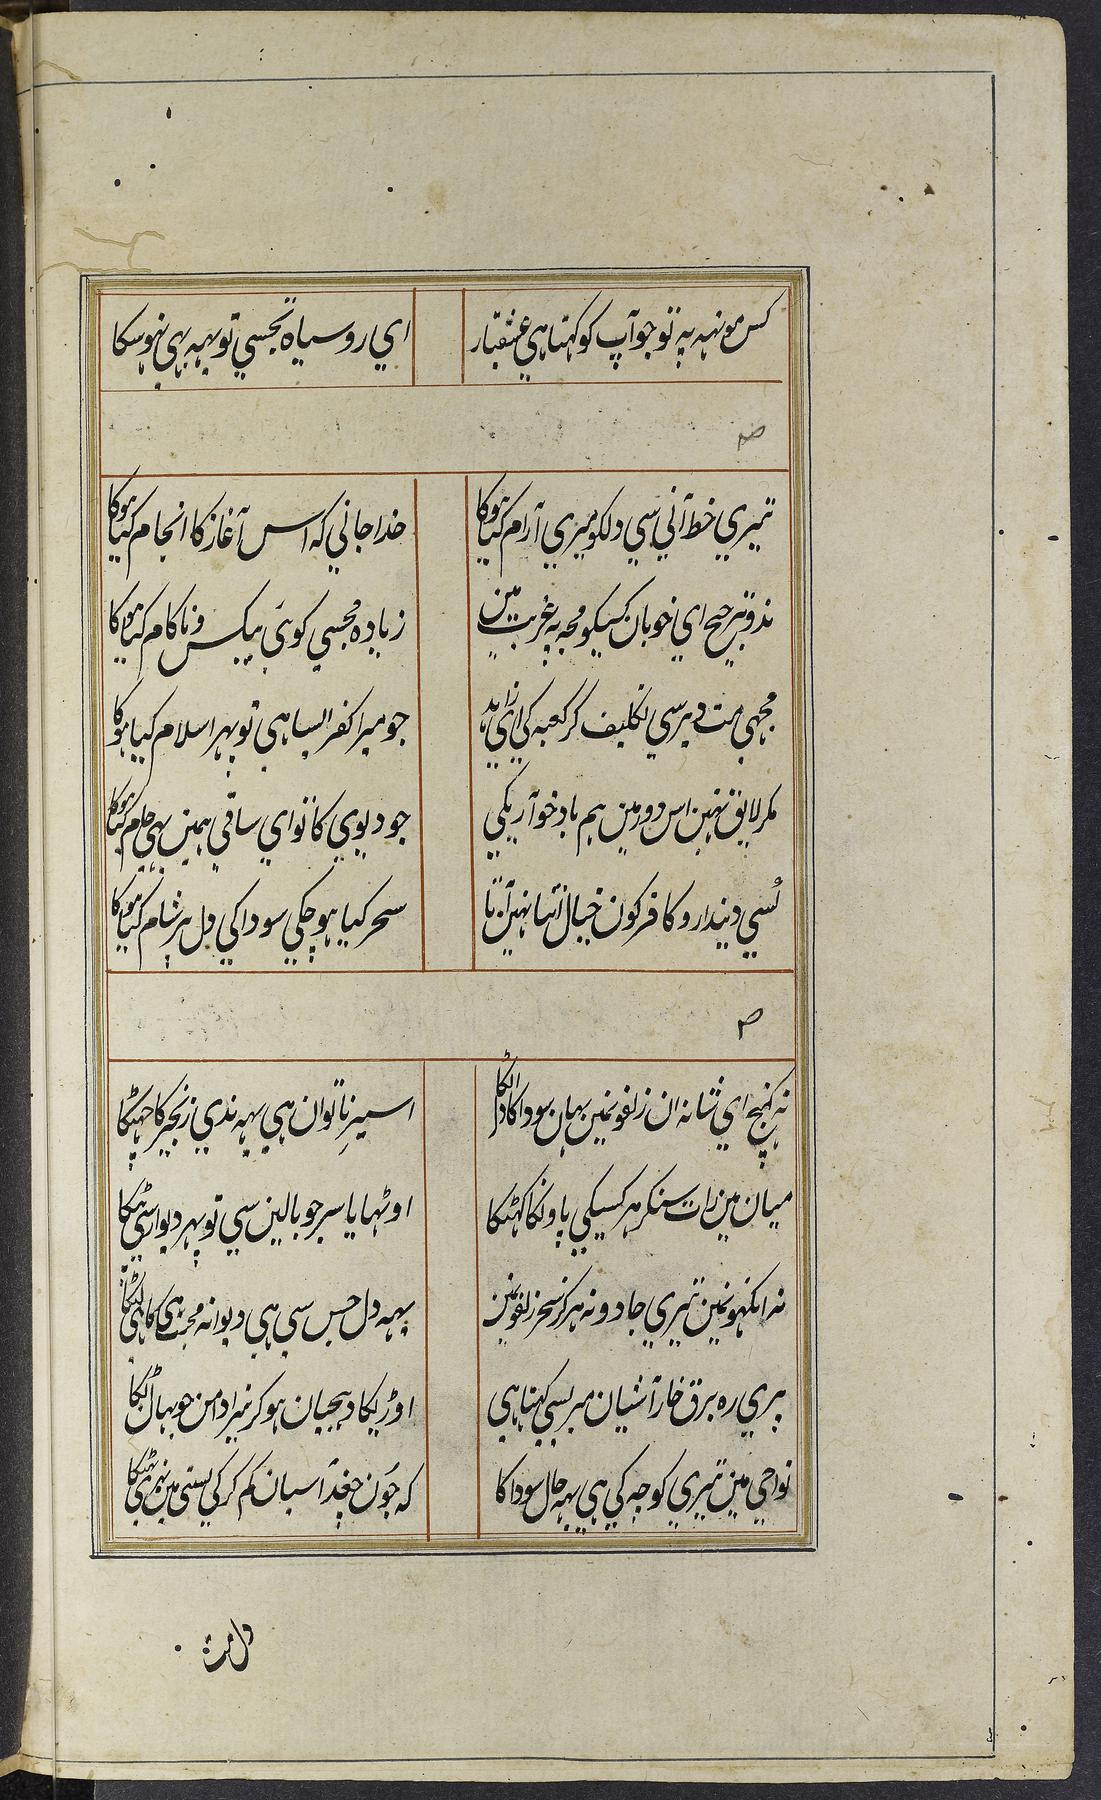 کس مونہہ پہ تو جو آپ کو کہتا ہی عشقباز ای روسیاہ تجسی تو یہہ بہی نہوسکا
تیری خط آنی سی دلکو میری آرام کیا ہوکا خدا جانی کہ اس آغاز کا انجام کیا ہوکا
نہ دو ترجیح ای خوبان کسیکو مجہہ پہ غربت مین زیادہ مجسی کوئی بیکس و ناکام کیا ہوکا
مجہی مت دیر سی تکلیف کر کعبہ کی ای زاہد جو میرا کفر ایسا ہی تو پہر اسلام کیا ہوکا
مکر لایق نہین اس دور مین ہم بادخواریکی جو دیوی کا تو ای ساقی ہمین بہی جام کیا ہوکا
دیندار و کافر کون خیال اتنا نہین آتا سحر کیا ہو چکی سودا کی دل پر شام کیا ہوکا
نہ کہنچ ای شانہ ان زلفونمین یہان سودا کا دل اٹکا اسیر ناتوان ہی یہہ ندی زنجیر کا جہٹکا
میان مین رات سنکر ہر کسیکی پاونکا کہٹکا اوٹہایا سر جو بالین سی تو پہر دیوار سی پٹکا
نہ انکہونمین تیری جادو نہ ہرکز سحر زلفونمین یہہ دل جس سی ہی دیوانہ محبت ہی کا ہی لٹکا
پری رہ برق خار آشیان میر سی کہتا ہی اوڑیکا دہجیان ہو کر تیرا دامن جو یہان اٹکا
نواحی مین تیری کوچہ کی ہی یہہ حال سودا کا کہ جون جغد آسیان کم کر کی بستی مین
دل مت